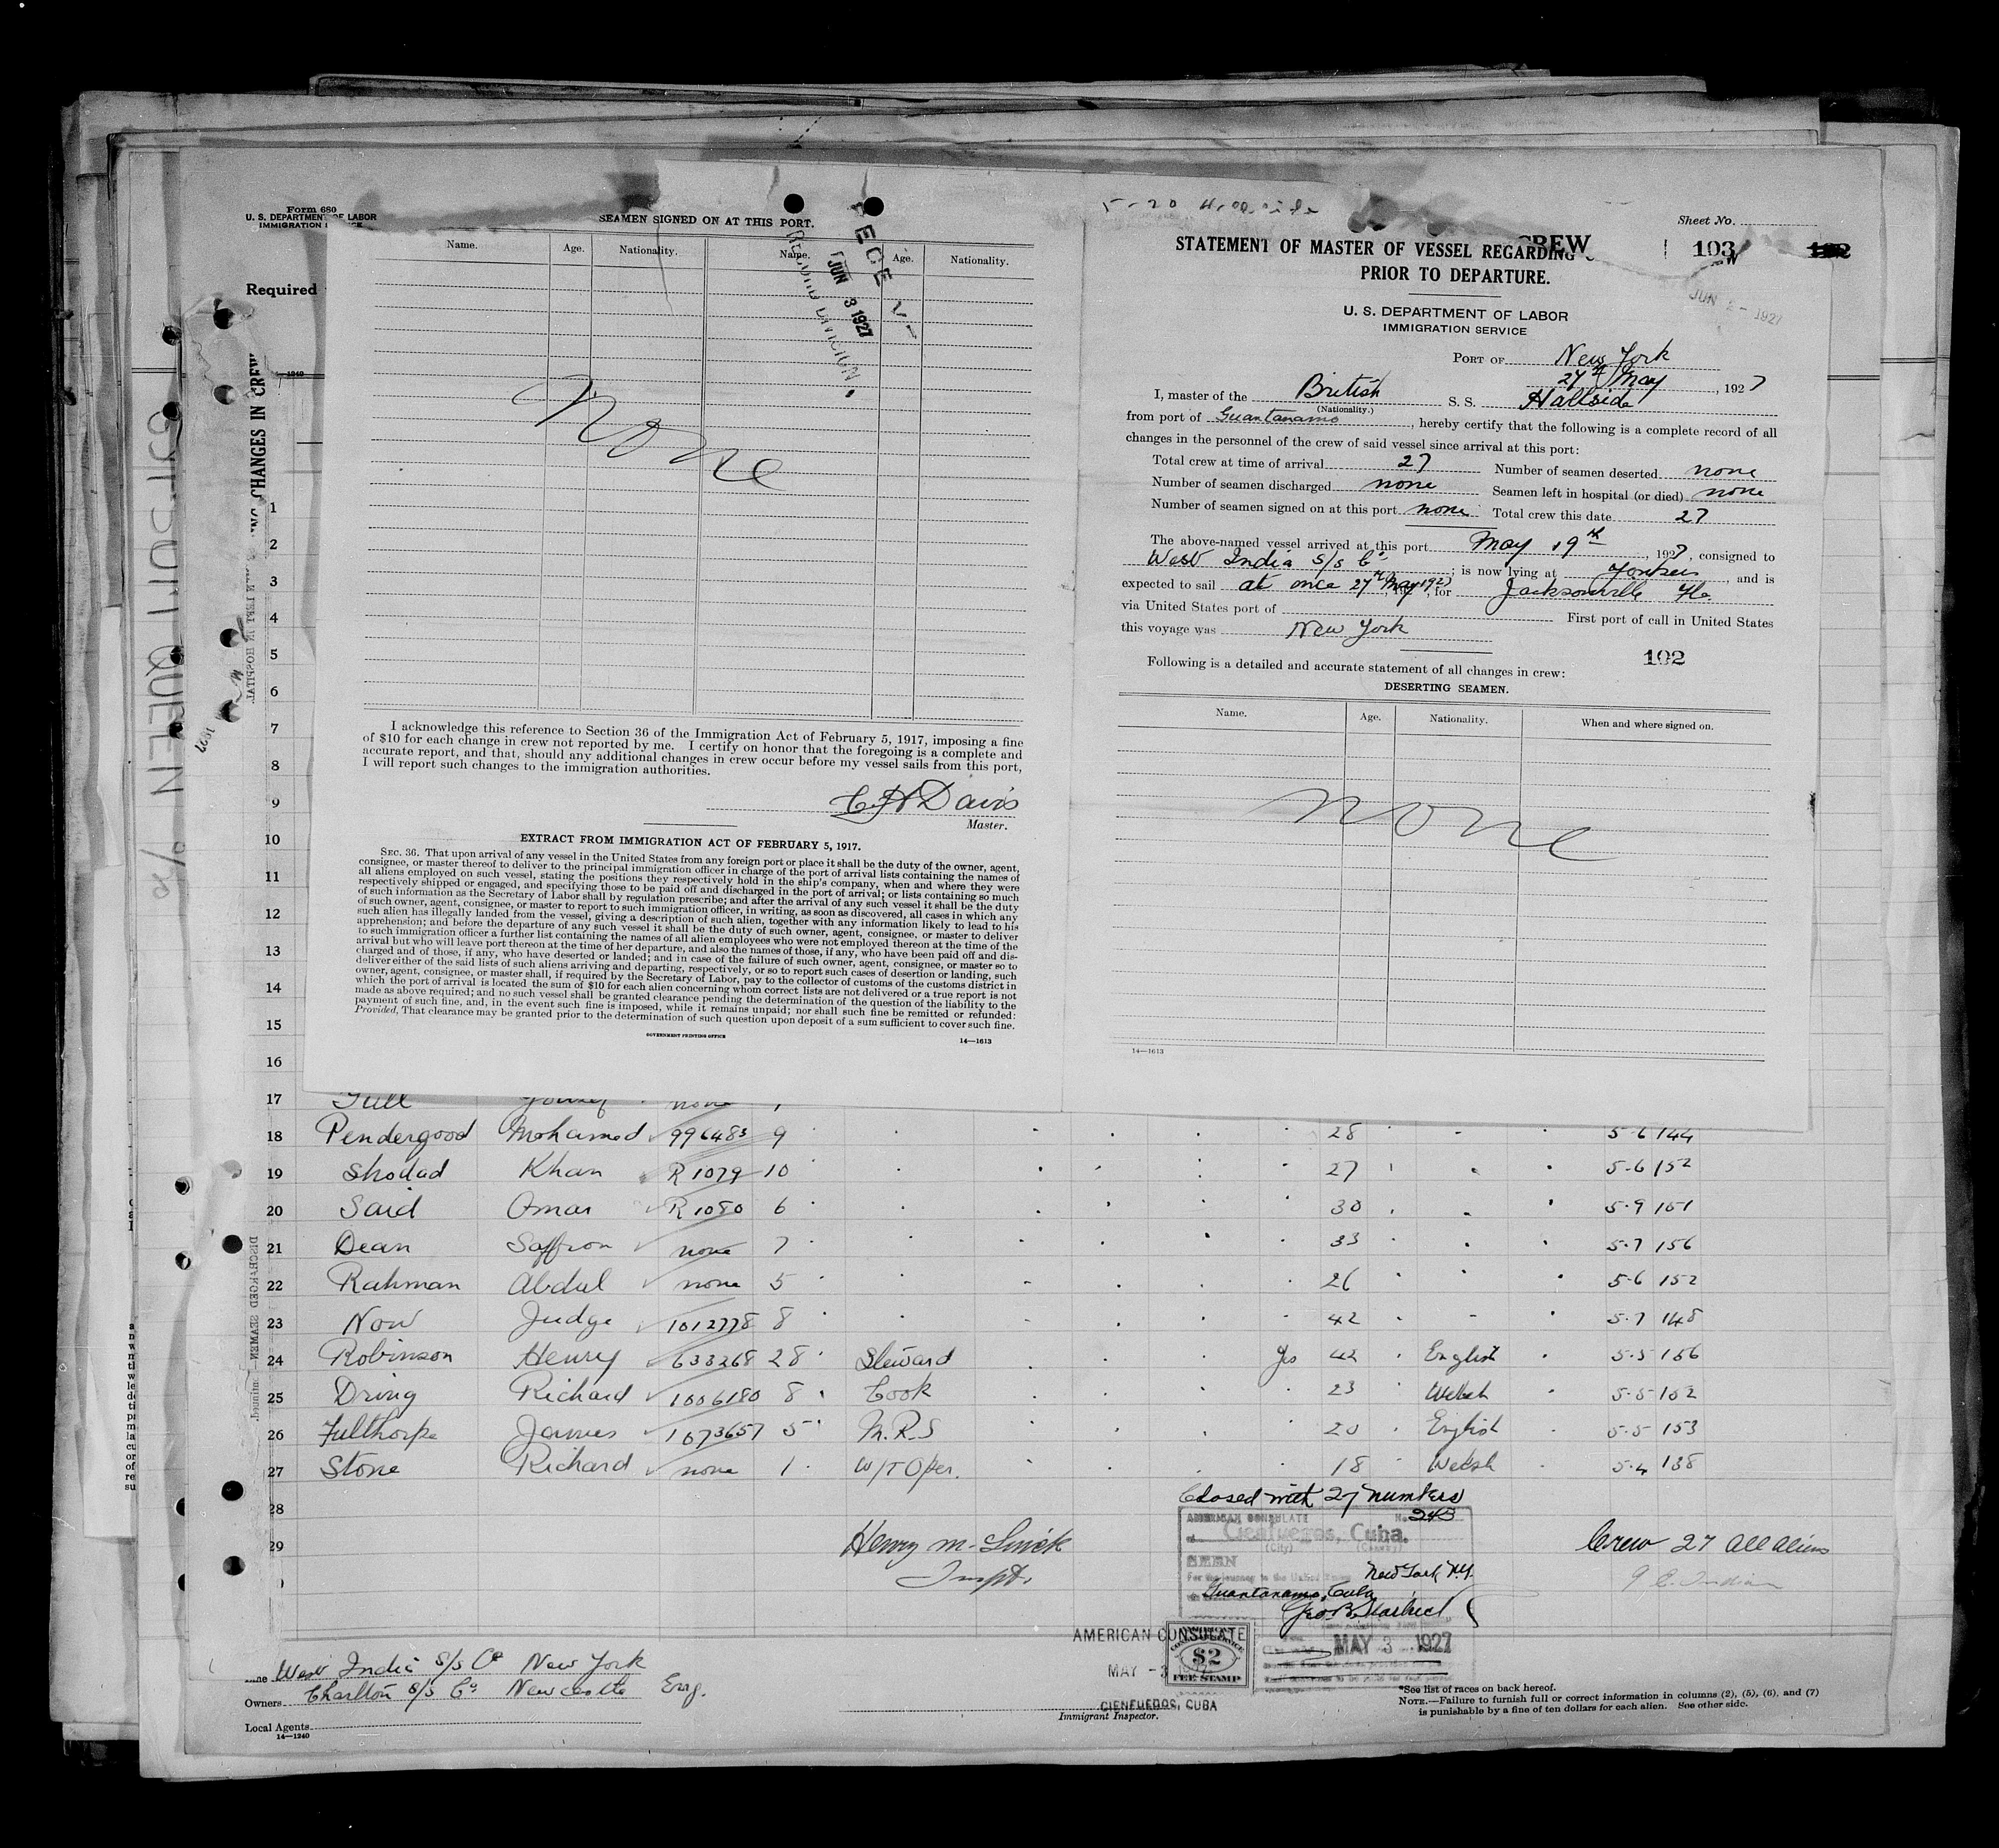 Form 680
U. S. DEPARTMENT OF LABOR
IMMIGRATION
Required
SEAMEN SIGNED ON AT THIS PORT.
Name. Age. Nationality. Name. Age. Nationality.
JUN 3 1927
RECORD DIVISION.
None
I acknowledge this reference to Section 36 of the Immigration Act of February 5, 1917, imposing a fine
of $10 for each change in crew not reported by me. I certify on honor that the foregoing is a complete and
accurate report, and that, should any additional changes in crew occur before my vessel sails from this port,
I will report such changes to the immigration authorities.
C H Davis
Master.
EXTRACT FROM IMMIGRATION ACT OF FEBRUARY 5, 1917.
SEC. 36. That upon arrival of any vessel in the United States from any foreign port or place it shall be the duty of the owner, agent,
consignee, or master thereof to deliver to the principal immigration officer in charge of the port of arrival lists containing the names of
all aliens employed on such vessel, stating the positions they respectively hold in the ship's company, when and where they were
respectively shipped or engaged, and specifying those to be paid off and discharged in the port of arrival; or lists containing so much
of such information as the Secretary of Labor shall by regulation prescribe; and after the arrival of any such vessel it shall be the duty
of such owner, agent, consignee, or master to report to such immigration officer, in writing, as soon as discovered, all cases in which any
such alien has illegally landed from the vessel, giving a description of such alien, together with any information likely to lead to his
apprehension; and before the departure of any such vessel it shall be the duty of such owner, agent, consignee, or master to deliver
to such immigration officer a further list containing the names of all alien employees who were not employed thereon at the time of the
arrival but who will leave port thereon at the time of her departure, and also the names of those, if any, who have been paid off and dis-
charged and of those, if any, who have deserted or landed; and in case of the failure of such owner, agent, consignee, or master so to
deliver either of the said lists of such aliens arriving and departing, respectively, or so to report such cases of desertion or landing, such
owner, agent, consignee, or master shall, if required by the Secretary of Labor, pay to the collector of customs of the customs district in
which the port of arrival is located the sum of $10 for each alien concerning whom correct lists are not delivered or a true report is not
made as above required; and no such vessel shall be granted clearance pending the determination of the question of the liability to the
payment of such fine, and, in the event such fine is imposed, while it remains unpaid; nor shall such fine be remitted or refunded:
Provided, That clearance may be granted prior to the determination of such question upon deposit of a sum sufficient to cover such fine.
GOVERNMENT PRINTING OFFICE
14—1613
Sheet No.
CREW
103
STATEMENT OF MASTER OF VESSEL REGARDING
PRIOR TO DEPARTURE.
JUN 2 - 1927
U. S. DEPARTMENT OF LABOR
IMMIGRATION SERVICE
PORT OF New York
27th May, 1927
I, master of the British S. S. Hallside
(Nationality.)
from port of Guantanamo, hereby certify that the following is a complete record of all
changes in the personnel of the crew of said vessel since arrival at this port:
Total crew at time of arrival 27 Number of seamen deserted none
Number of seamen discharged none Seamen left in hospital (or died) none
Number of seamen signed on at this port none Total crew this date 27
The above-named vessel arrived at this port May 19th, 1927, consigned to
West India S/s Co; is now lying at Yonkers, and is
expected to sail at once 27th May 1927, for Jacksonville Fla
via United States port of First port of call in United States
this voyage was New York
102
Following is a detailed and accurate statement of all changes in crew:
DESERTING SEAMEN.
Name. Age. Nationality. When and where signed on.
none
14—1613
CHANGES IN CREW
1
2
3
4
5
6
7
8
9
10
11
12
13
14
15
16
17 Gull none
18 Pendergood Mohamed 996483 9 28 5-6 144
19 Shodad Khan R 1079 10 27 5-6 152
20 Said Omar R 1080 6 30 5-9 151
21 Dean Saffron none 7 33 5-7 156
22 Rahman Abdul none 5 26 5-6 152
23 Now Judge 1012778 8 42 5-7 148
24 Robinson Henry 633268 28 Steward Yes 42 English 5-5 156
25 Dring Richard 1006180 8 Cook 23 Welsh 5-5 152
26 Fulthorpe James 1073657 5 M.R.S 20 English 5-5 153
27 Stone Richard none 1 W/T Oper. 18 Welsh 5-4 138
28
29
DISCHARGED SEAMEN
Closed with 27 numbers
AMERICAN CONSULATE No. 243
Cienfuegos, Cuba.
(City) (Country)
SEEN
For the journey to the United States New York N.Y.
Guantanamo, Cuba
MAY 3 1927
Henry M.
Inspt.
Crew 27 all aliens
AMERICAN CONSULATE
MAY -3
CIENFUEGOS, CUBA
$2
FEE STAMP
West India S/s Co New York
Owners Charlton S/s Co Newcastle Eng.
Local Agents
14—1240
Immigrant Inspector.
*See list of races on back hereof.
NOTE.—Failure to furnish full or correct information in columns (2), (5), (6), and (7)
is punishable by a fine of ten dollars for each alien. See other side.